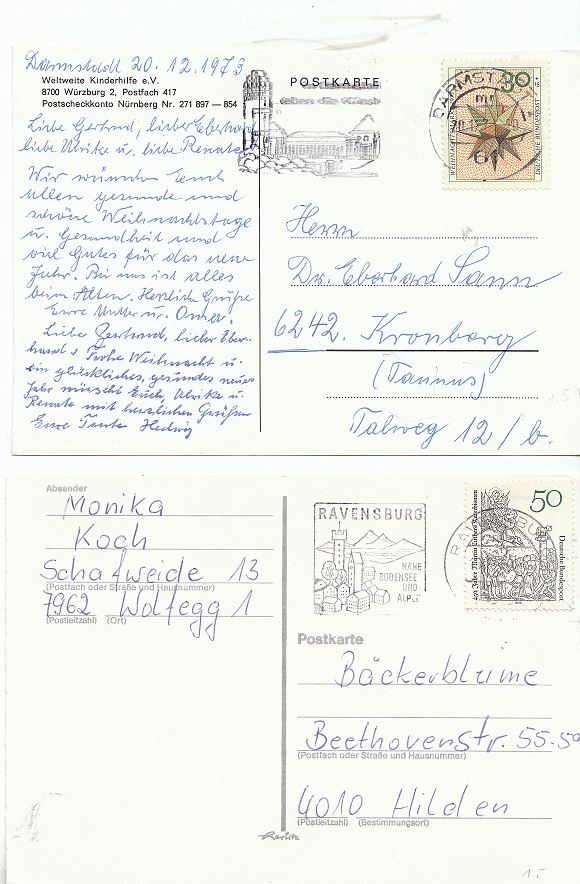 Darmstadt 20.12.1973
Weltweite Kinderhilfe e.V.
8700 Würzburg 2, Postfach 417
Postscheckkonto Nürnberg Nr. 271 897 — 854
Liebe Gertrud, lieber Eberhard
liebe Ulrike u. liebe Renate
Wir wünschen Euch
allen gesunde und
schöne Weihnachtstage
u. Gesundheit und
viel Gutes für das neue
Jahr. Bei uns ist alles
beim Alten. Herzliche Grüße
Eure Mutter u. Oma.
Liebe Gertrud, lieber Eber-
hard! Frohe Weihnacht u.
ein glückliches, gesundes neues
Jahr wünscht Euch, Ulrike u.
Renate mit herzlichen Grüßen
Eure Tante Hedwig
POSTKARTE
leben die Künste
DARMSTADT
30
DEUTSCHE BUNDESPOST
Herrn
Dr. Eberhard Sann
6242. Kronberg
(Taunus)
Talweg 12/b.
1.50
Absender
Monika
Koch
Schafweide 13
(Postfach oder Straße und Hausnummer)
7962 Wolfegg 1
(Postleitzahl) (Ort)
RAVENSBURG
NÄHE
BODENSEE
UND
ALPEN
50
Deutsche Bundespost
Postkarte
Bäckerblume
Beethovenstr. 55-59
(Postfach oder Straße und Hausnummer)
4010 Hilden
(Postleitzahl) (Bestimmungsort)
15